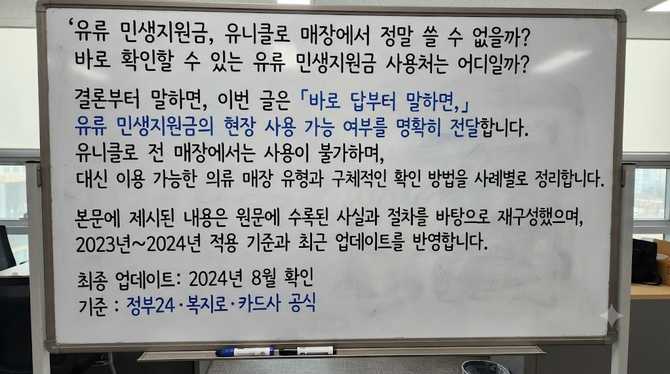 ‘유류 민생지원금, 유니클로 매장에서 정말 쓸 수 없을까?
바로 확인할 수 있는 유류 민생지원금 사용처는 어디일까?
결론부터 말하면, 이번 글은 「바로 답부터 말하면,」
유류 민생지원금의 현장 사용 가능 여부를 명확히 전달합니다.
유니클로 전 매장에서는 사용이 불가하며,
대신 이용 가능한 의류 매장 유형과 구체적인 확인 방법을 사례별로 정리합니다.
본문에 제시된 내용은 원문에 수록된 사실과 절차를 바탕으로 재구성했으며,
2023년~2024년 적용 기준과 최근 업데이트를 반영합니다.
최종 업데이트: 2024년 8월 확인
기준 : 정부24·복지로·카드사 공식